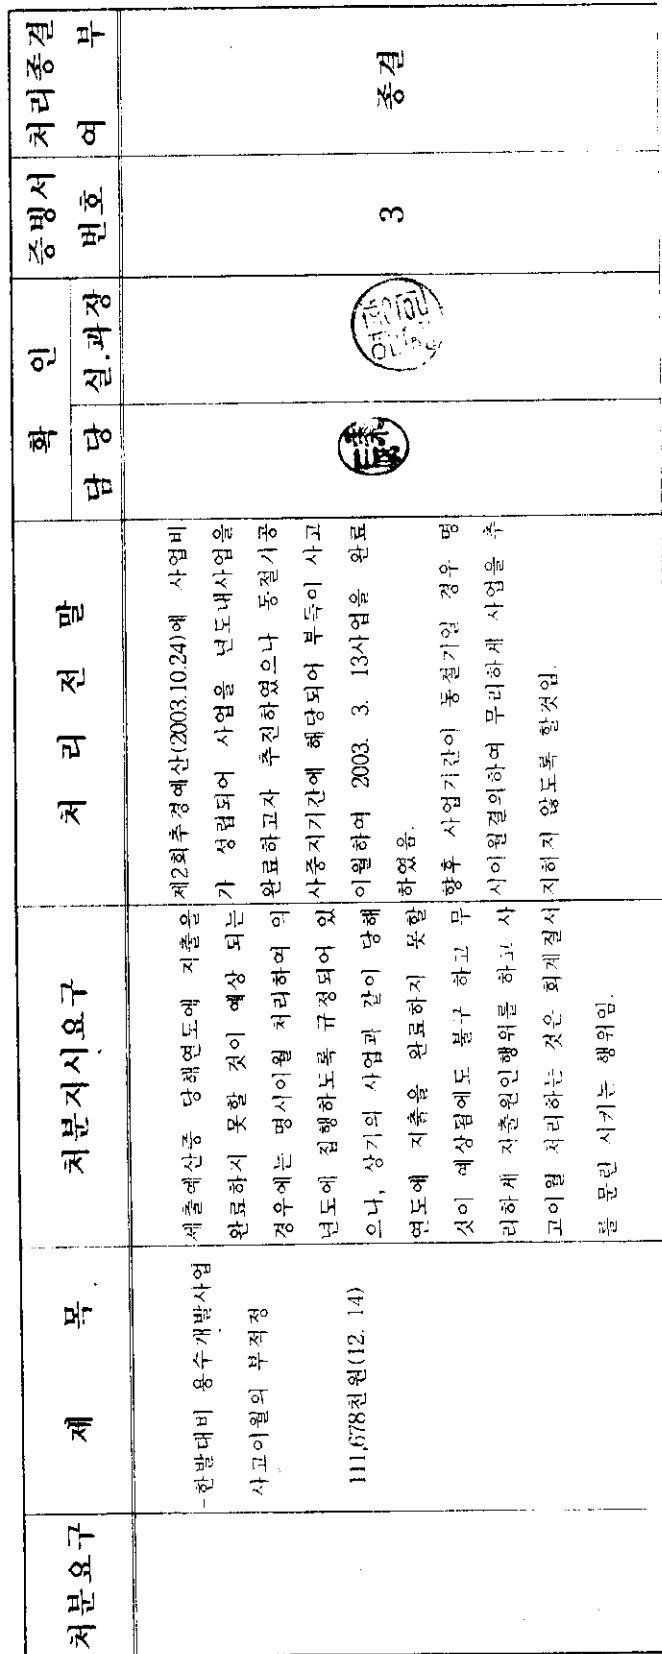 처분요구
제 목
처분지시요구
처 리 전 말
확 인
담 당
실.과장
증빙서
번호
처리종결
여 부
-한발대비 용수개발사업
사고이월의 부적정
111,678천원(12. 14)
세출예산중 당해연도에 지출을
완료하지 못할 것이 예상 되는
경우에는 명시이월 처리하여 익
년도에 집행하도록 규정되어 있
으나, 상기의 사업과 같이 당해
연도에 지출을 완료하지 못할
것이 예상됨에도 불구 하고 무
리하게 지출원인행위를 하고 사
고이월 처리하는 것은 회계질서
를 문란 시키는 행위임.
제2회추경예산(2003.10.24)에 사업비
가 성립되어 사업을 년도내사업을
완료하고자 추진하였으나 동절기공
사중지기간에 해당되어 부득이 사고
이월하여 2003. 3. 13사업을 완료
하였음.
향후 사업기간이 동절기일 경우 명
시이월결의하여 무리하게 사업을 추
지하지 않도록 할것임.
3
종결